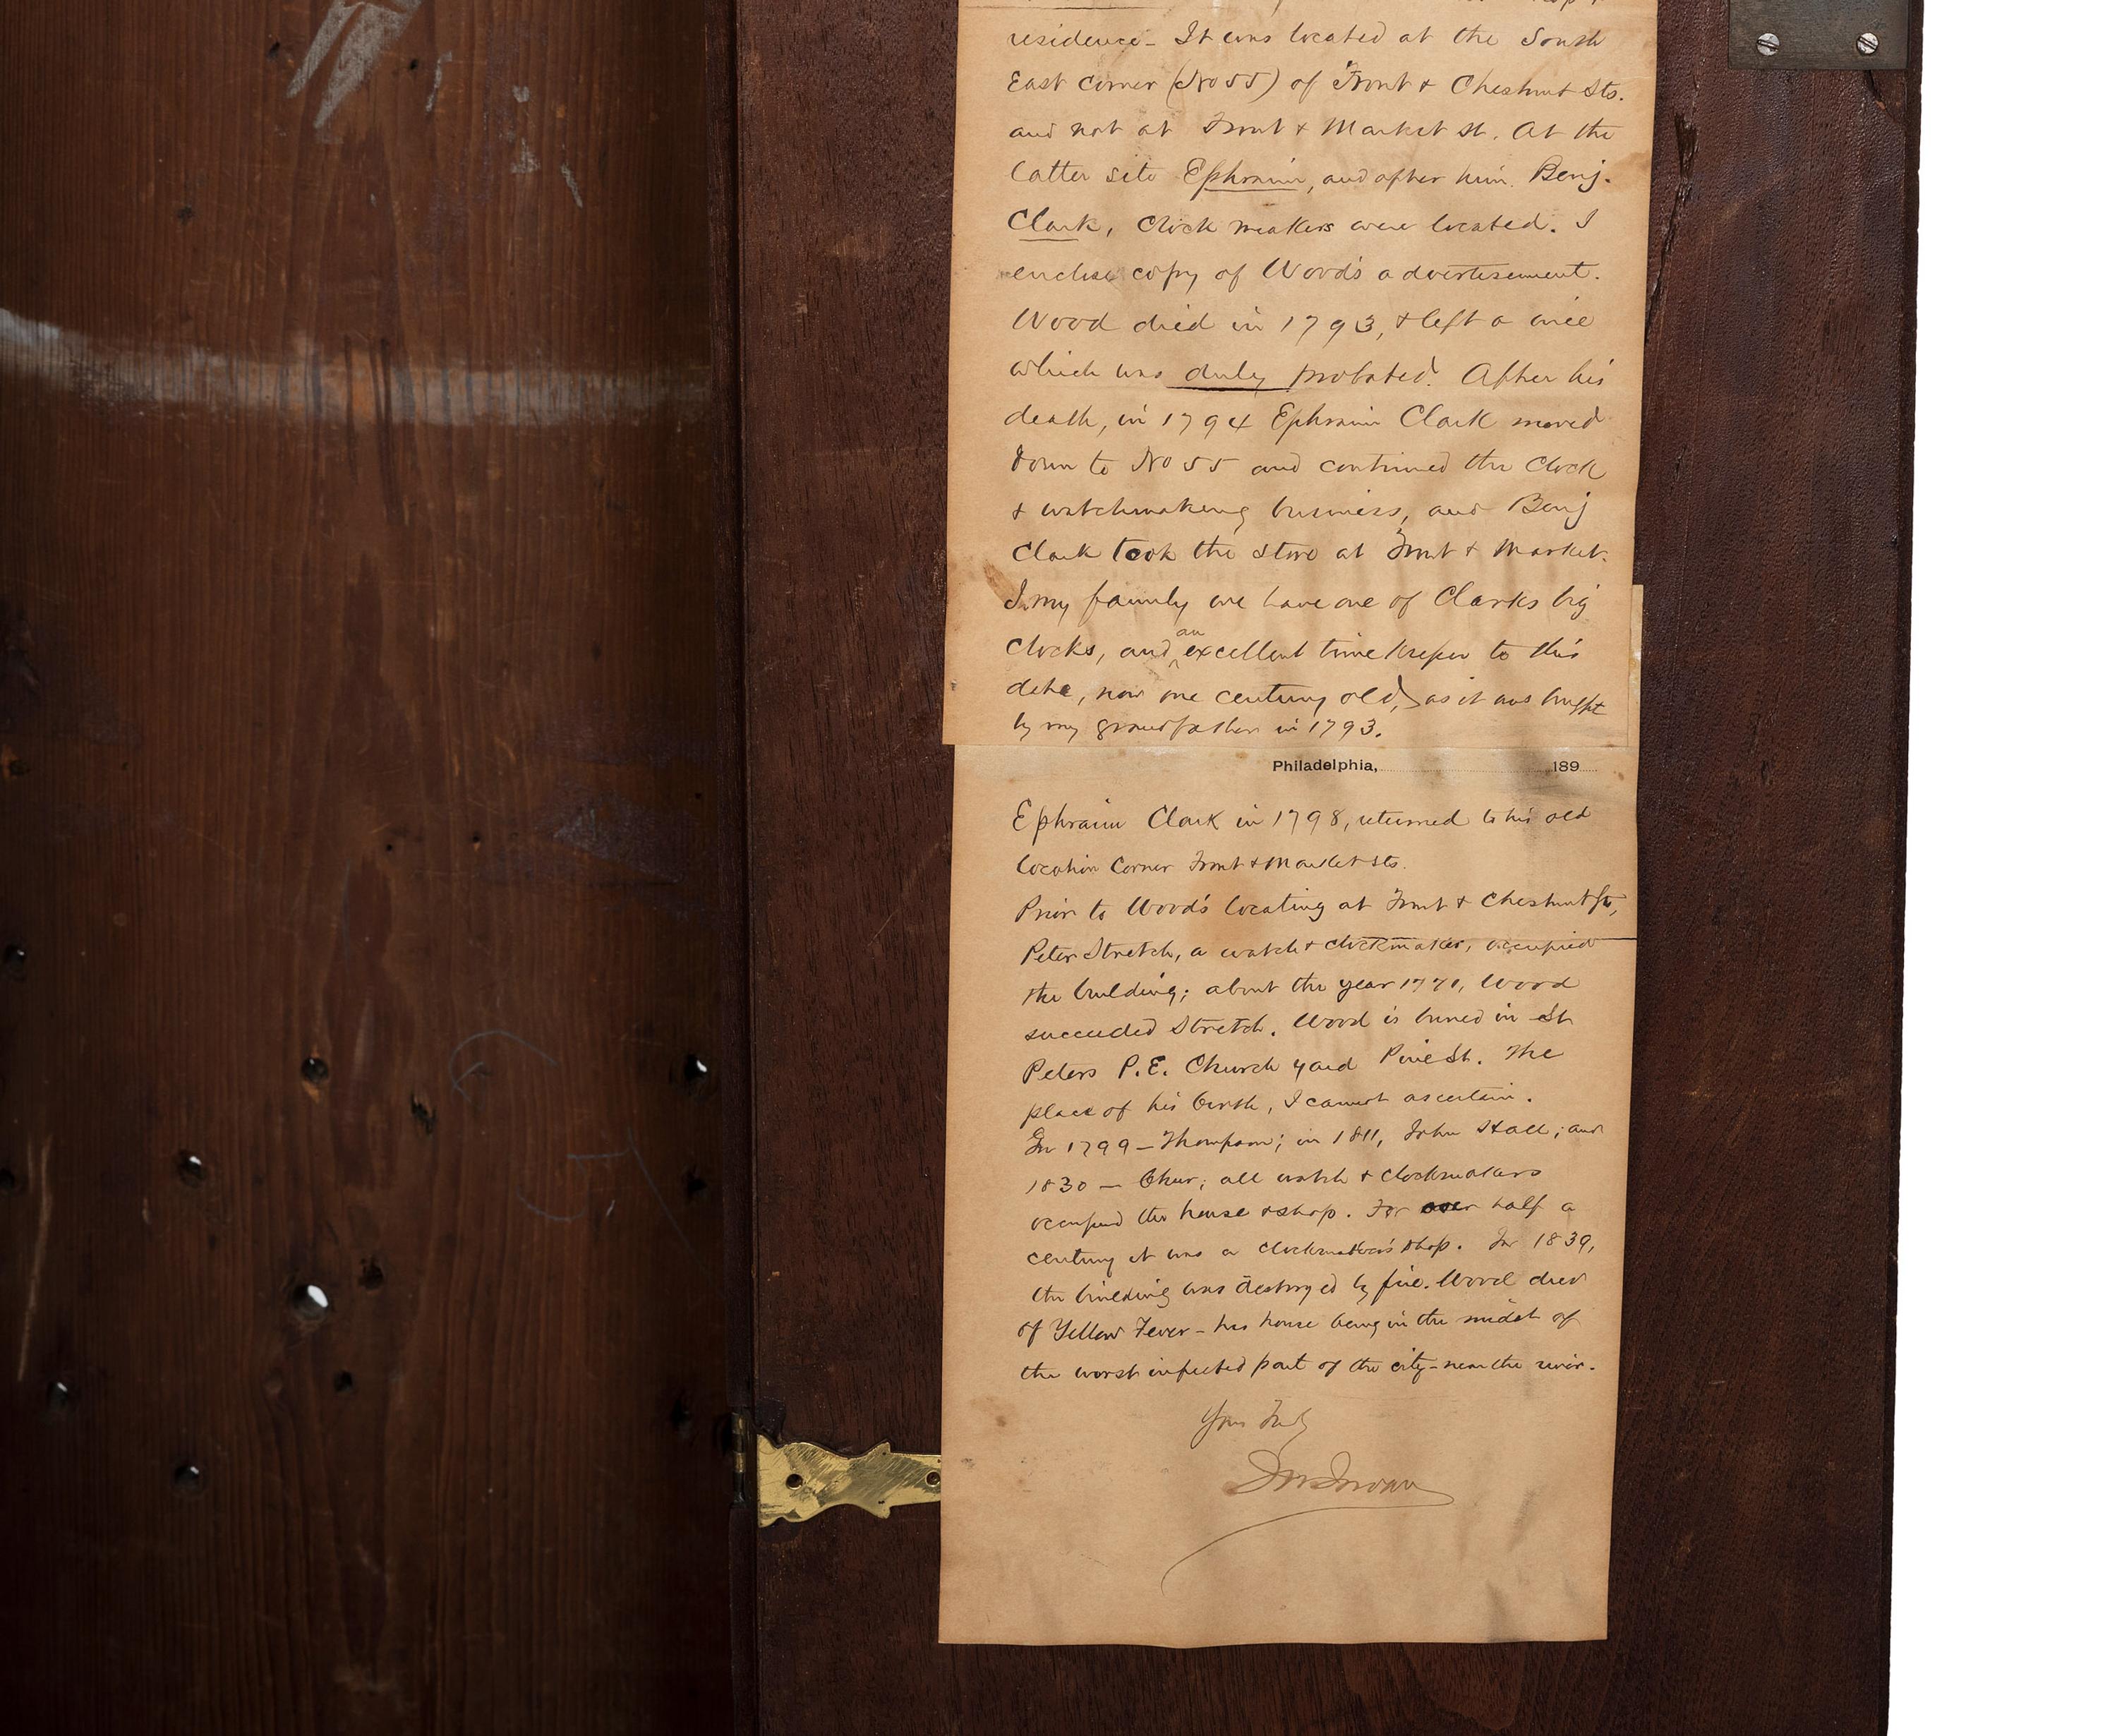 residence - It was located at the South
East Corner (No 55) of Front & Chestnut Sts.
and not at Front & Market st. At the
latter site Ephraim, and after him. Benj.
Clark, Clock makers were located. I
enclose copy of Wood's advertisement.
Wood died in 1793, & left a will
which was duly probated. After his
death, in 1794 Ephraim Clark moved
down to No 55 and continued the Clock
& watchmaking business, and Benj
Clark took the store at Front & Market.
In my family we have one of Clarks big
Clocks, and an excellent time keeper to this
date, now one century old, as it was bought
by my grandfather in 1793.
Philadelphia, 189
Ephraim Clark in 1798, returned to his old
location Corner Front & Market Sts.
Prior to Wood's locating at Front & Chestnut Sts,
Peter Stretch, a watch & clockmaker, occupied
the building; about the year 1770, Wood
succeeded Stretch. Wood is buried in St
Peters P.E. Church yard Pine St. The
place of his birth, I cannot ascertain.
In 1799 - Thompson; in 1811, John Hall; and
1830 - all watch & clockmakers
occupied the house & shop. For over half a
century it was a clockmaker's shop. In 1839,
the building was destroyed by fire. Wood died
of Yellow Fever - his house being in the midst of
the worst infected part of the city - near the river.
Yours Truly